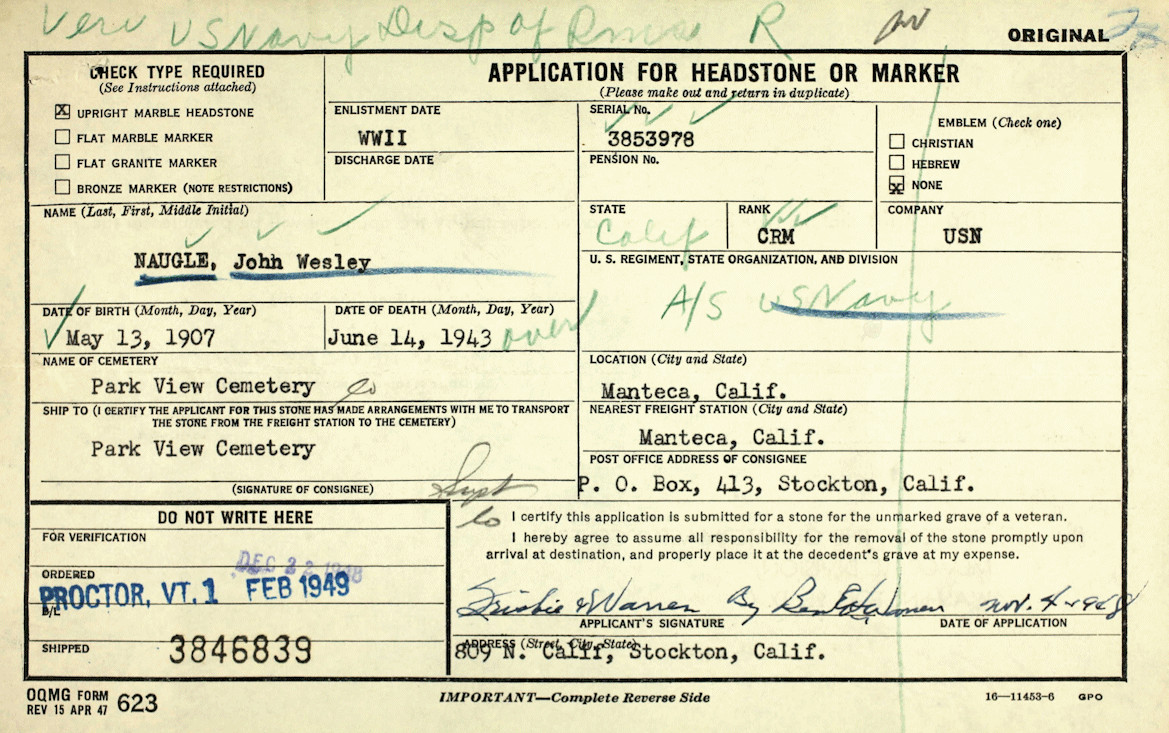 Veri US Navy Disp of Rmns R
ORIGINAL
CHECK TYPE REQUIRED
(See Instructions attached)
X UPRIGHT MARBLE HEADSTONE
FLAT MARBLE MARKER
FLAT GRANITE MARKER
BRONZE MARKER (NOTE RESTRICTIONS)
APPLICATION FOR HEADSTONE OR MARKER
(Please make out and return in duplicate)
ENLISTMENT DATE
WWII
DISCHARGE DATE
SERIAL No.
3853978
PENSION No.
EMBLEM (Check one)
CHRISTIAN
HEBREW
X NONE
NAME (Last, First, Middle Initial)
NAUGLE, John Wesley
STATE
Calif
RANK
CRM
COMPANY
USN
U. S. REGIMENT, STATE ORGANIZATION, AND DIVISION
A/S US Navy
DATE OF BIRTH (Month, Day, Year)
May 13, 1907
DATE OF DEATH (Month, Day, Year)
June 14, 1943 over
NAME OF CEMETERY
Park View Cemetery Co
LOCATION (City and State)
Manteca, Calif.
SHIP TO (I CERTIFY THE APPLICANT FOR THIS STONE HAS MADE ARRANGEMENTS WITH ME TO TRANSPORT
THE STONE FROM THE FREIGHT STATION TO THE CEMETERY)
Park View Cemetery
NEAREST FREIGHT STATION (City and State)
Manteca, Calif.
POST OFFICE ADDRESS OF CONSIGNEE
P. O. Box, 413, Stockton, Calif.
(SIGNATURE OF CONSIGNEE)
Supt
Co
DO NOT WRITE HERE
FOR VERIFICATION
DEC 22 1948
ORDERED
PROCTOR, VT. 1 FEB 1949
B/L
SHIPPED
3846839
I certify this application is submitted for a stone for the unmarked grave of a veteran.
I hereby agree to assume all responsibility for the removal of the stone promptly upon
arrival at destination, and properly place it at the decedent's grave at my expense.
Frisbie & Warren By Nov. 4-1948
APPLICANT'S SIGNATURE
DATE OF APPLICATION
ADDRESS (Street, City, State)
809 N. Calif, Stockton, Calif.
OQMG FORM
REV 15 APR 47 623
IMPORTANT—Complete Reverse Side
16—11453-6 GPO